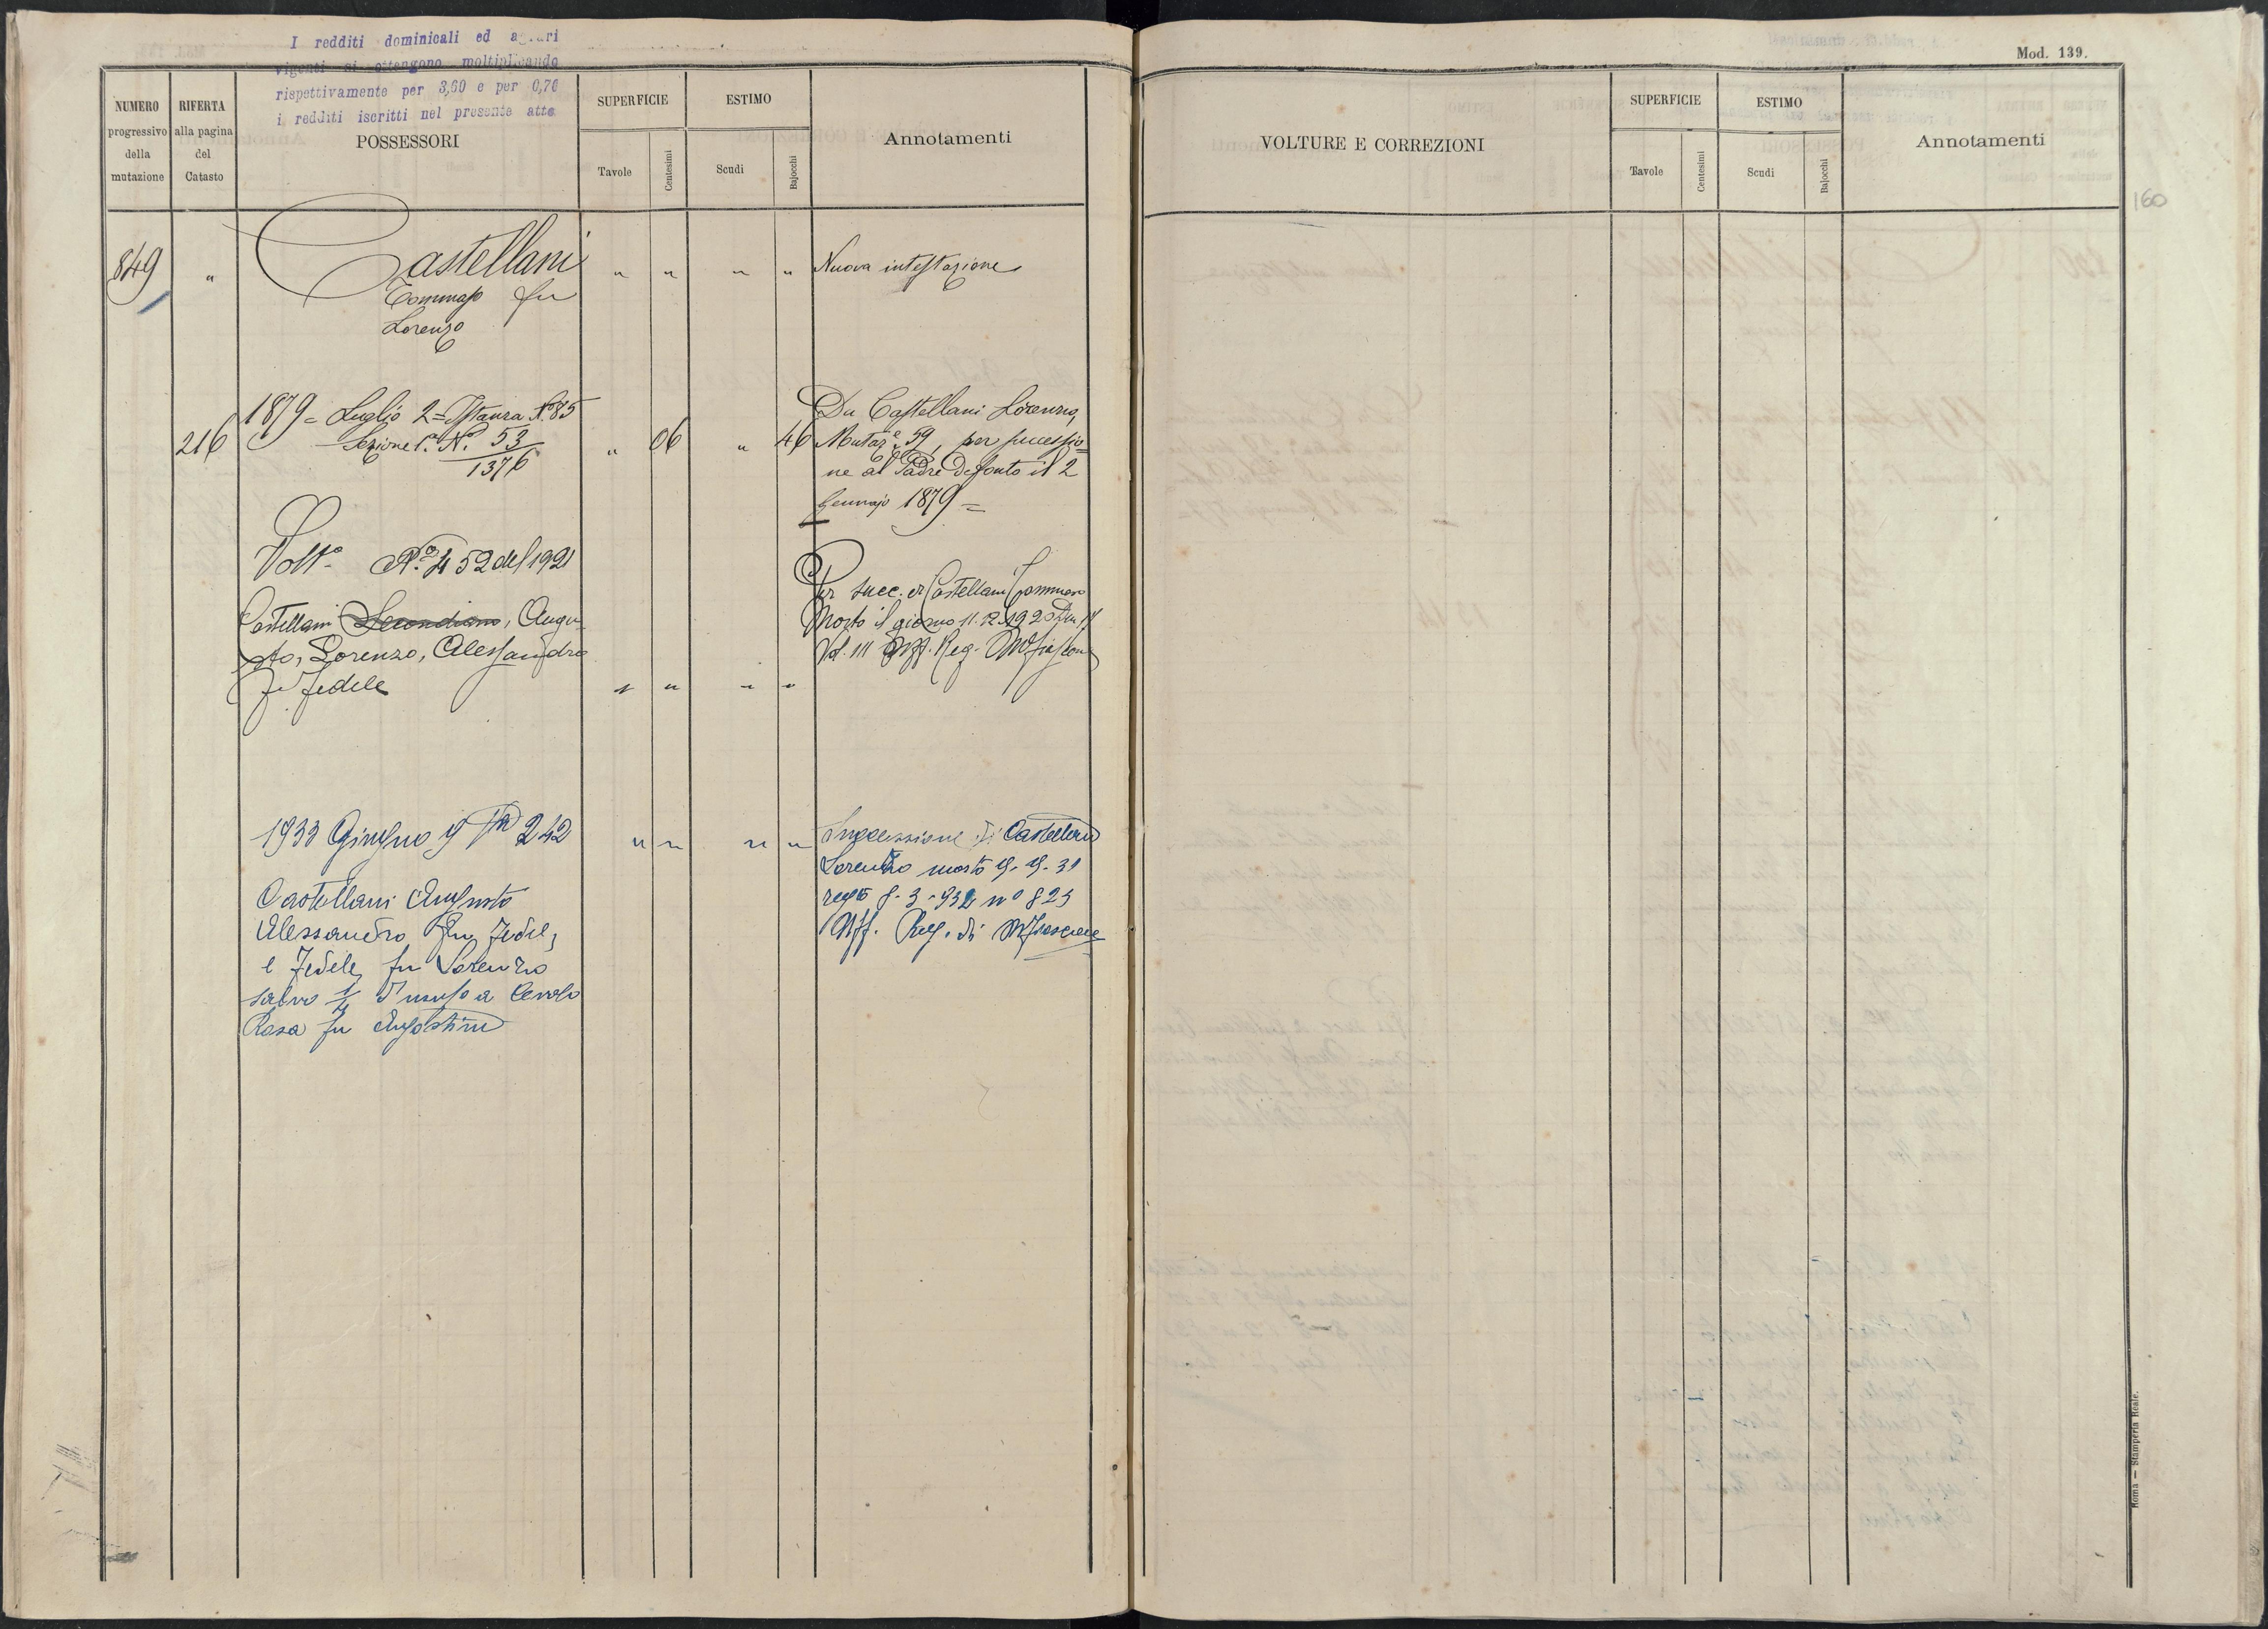 I redditi dominicali ed agrari
vigenti si ottengono moltiplicando
rispettivamente per 3,60 e per 0,70
i redditi iscritti nel presente atto
Mod. 139.
NUMERO progressivo della mutazione
RIFERTA alla pagina del Catasto
POSSESSORI
SUPERFICIE
Tavole
Centesimi
ESTIMO
Scudi
Bajocchi
Annotamenti
VOLTURE E CORREZIONI
SUPERFICIE
Tavole
Centesimi
ESTIMO
Scudi
Bajocchi
Annotamenti
160
849 " Castellani " " " " Nuova intestazione
Tommaso fu
Lorenzo
1879 = Luglio 2 = Istanza N. 85
216 Sezione 1ª N. 53/1376 " 06 " 46
Da Castellani Lorenzo,
Mutaze 59, per successio=
ne al Padre defonto il 2
Gennajo 1879 =
Volta No. 452 del 1921
Castellani Secondiano, Augu-
sto, Lorenzo, Alessandro
fu Fedele " " " "
Per succ. di Castellani Tommaso
Morto il giorno 11.12.1920
Vol. 111 Uff. Reg. Mfiascone
1933 Giugno 9 N 242 " " " "
Castellani Augusto
Alessandro fu Fedele,
e Fedele fu Lorenzo
salvo 1/4 d'usufo a
Rosa fu Agostino
Successione di Castellani
Lorenzo morto 9-9-31
regto 8-3-932 no 823
Uff. Reg. di Mfiascone
Roma — Stamperia Reale.